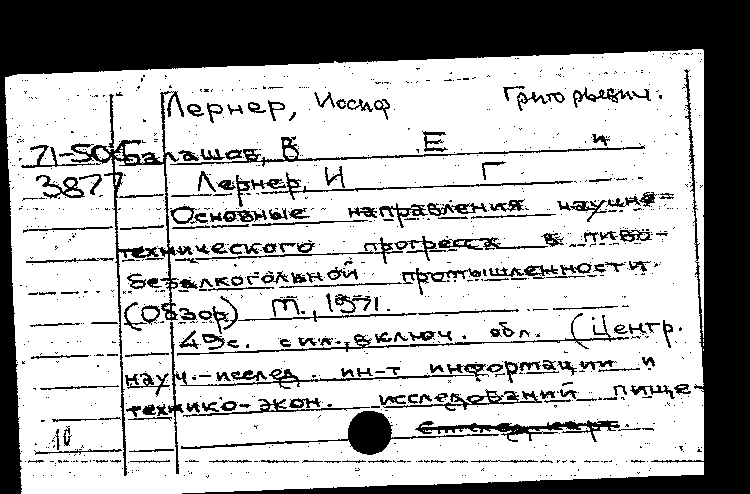 Лернер, Иосиф Григорьевич.
71-504 Балашов, В Е и
3877 Лернер, И Г
Основные направления научно-
технического прогресса в пиво-
безалкогольной промышленности.
(Обзор) М., 1971.
49с. с ил., включ. обл. (Центр.
науч.-исслед. ин-т информации и
технико-экон. исследований пище-
10 См.след.карт.